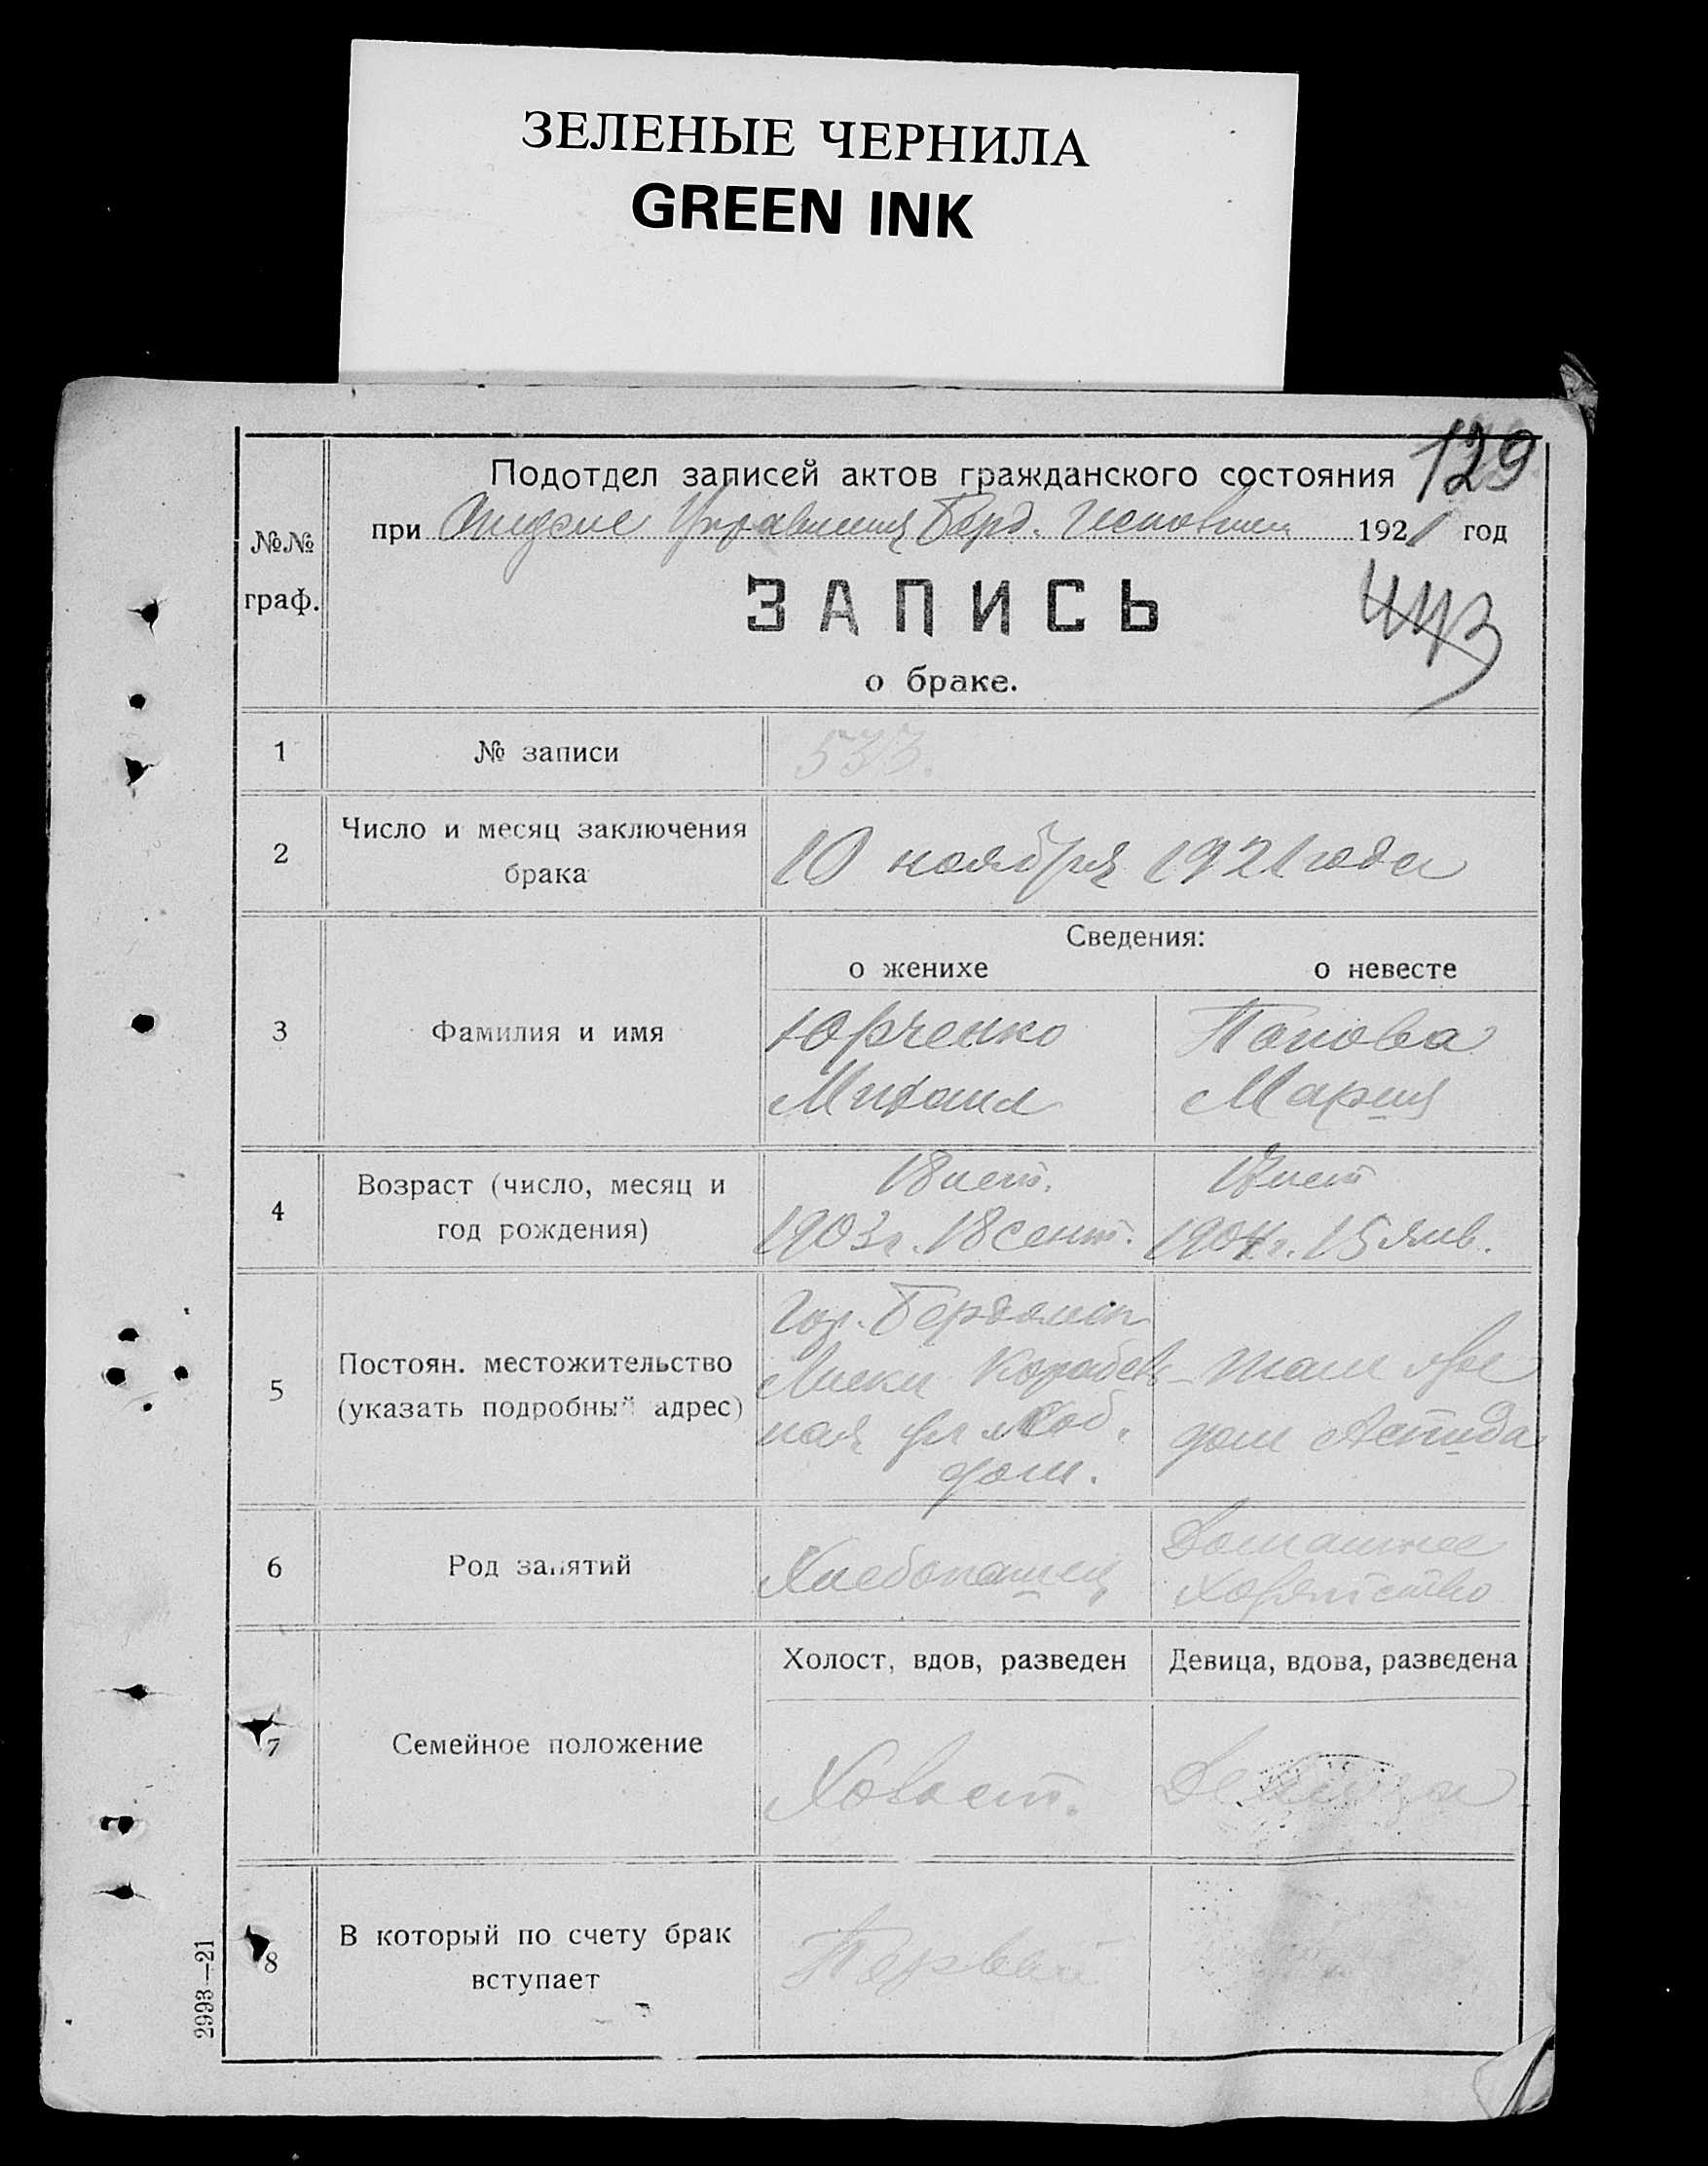 ЗЕЛЕНЫЕ ЧЕРНИЛА
GREEN INK
129
Подотдел записей актов гражданского состояния
при Отделе Управления Берд. Исполкома 1921 год
№№
граф.
ЗАПИСЬ
о браке.
1 № записи 533.
2 Число и месяц заключения
брака
10 ноября 1921 года
Сведения:
о женихе о невесте
3 Фамилия и имя
Юрченко Попова
Михаил Мария
4 Возраст (число, месяц и
год рождения)
18 лет. лет
1903 г. 18 сент. 1904 г. 15 янв.
5 Постоян. местожительство
(указать подробный адрес)
Гор. Бердянск
Лиски Корабель- там же
ная ул. соб. дом
дом.
6 Род занятий
Хлебопашец Домашнее
хозяйство
Холост, вдов, разведен Девица, вдова, разведена
7 Семейное положение
Холост. Девица
8 В который по счету брак
вступает
Первый
2993—21